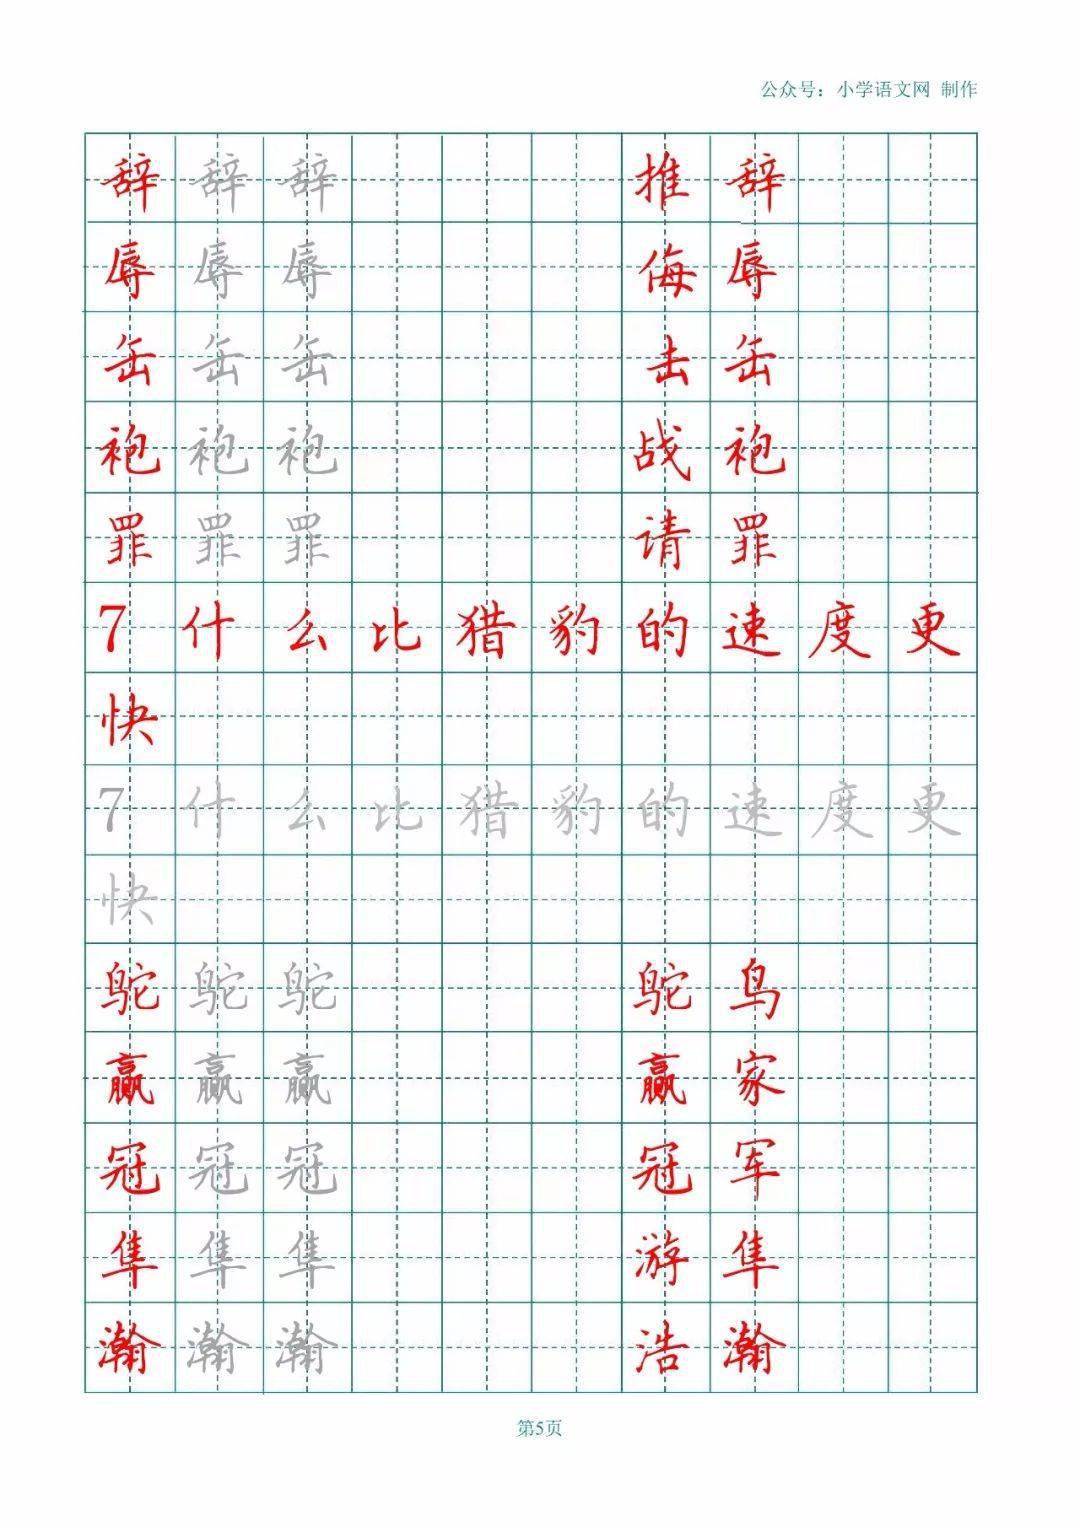 公众号：小学语文网 制作
辞 辞 辞 推 辞
辱 辱 辱 侮 辱
缶 缶 缶 击 缶
袍 袍 袍 战 袍
罪 罪 罪 请 罪
7 什 么 比 猎 豹 的 速 度 更
快
7 什 么 比 猎 豹 的 速 度 更
快
鸵 鸵 鸵 鸵 鸟
赢 赢 赢 赢 家
冠 冠 冠 冠 军
隼 隼 隼 游 隼
瀚 瀚 瀚 浩 瀚
第5页